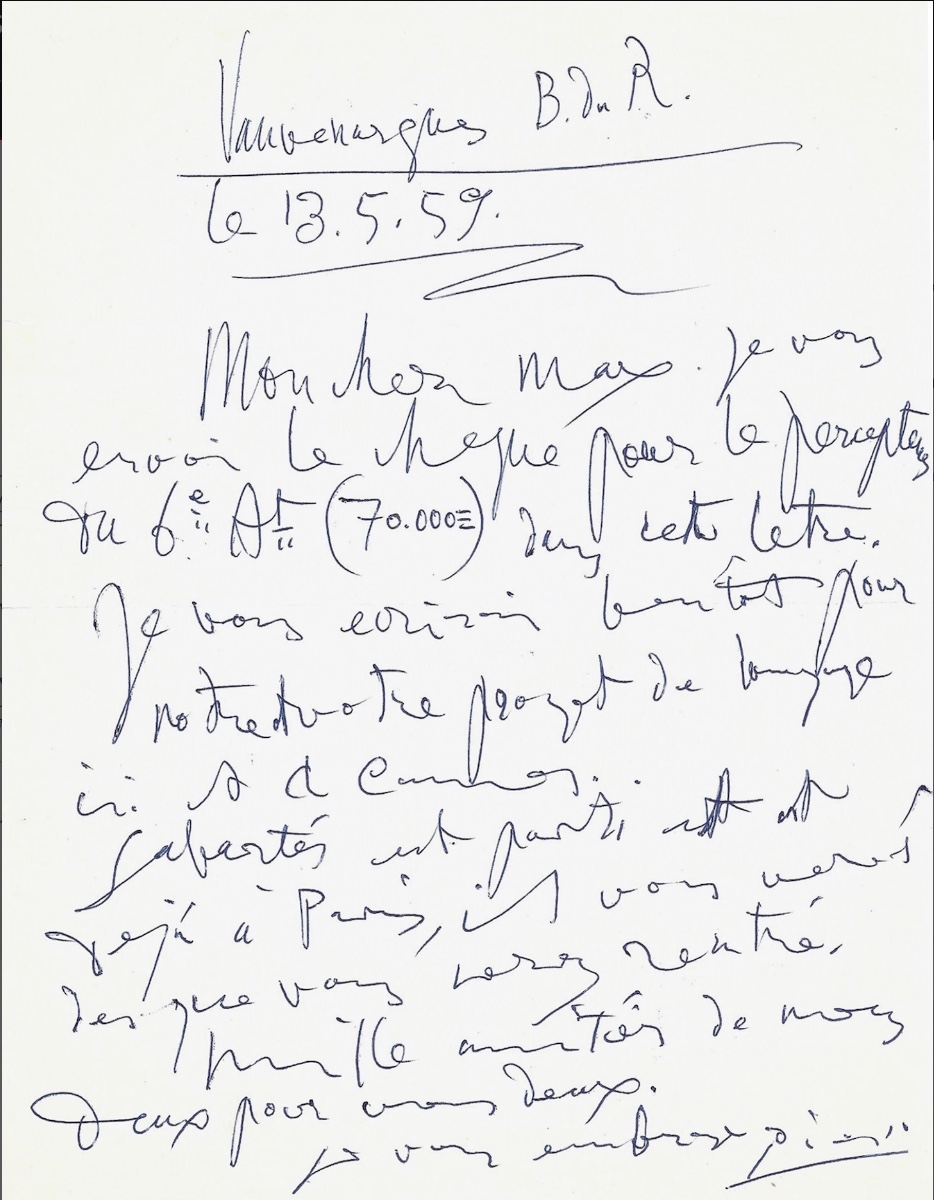 Vauvenargues B. du R.
le 13.5.59.
Mon cher Max. je vous
envoi le cheque pour le percepteur
du 6e At (70.000=) dans cette lettre.
Je vous ecrirai bientôt pour
notre votre projet de
ici. A Cannes.
Sabartés est parti et est
dejà à Paris, il vous verra
des que vous serez rentré.
Mille amitiés de nous
deux pour vous deux.
je vous embrasse